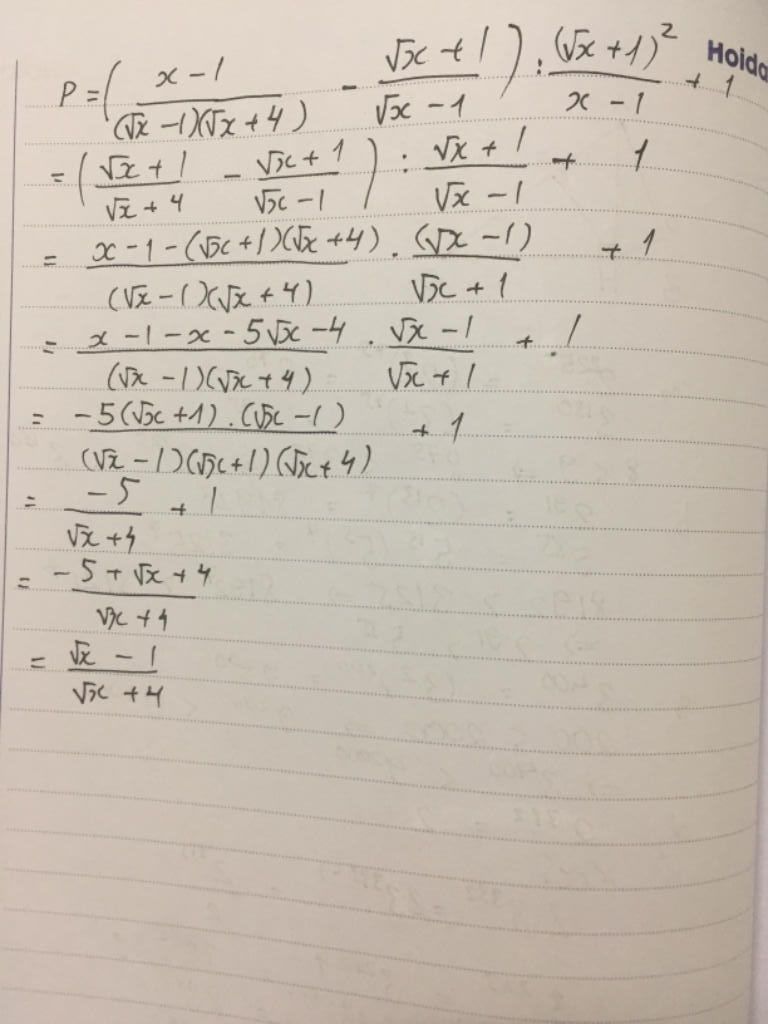 P = ( (x - 1)/((√x - 1)(√x + 4)) - (√x + 1)/(√x - 1) ) : (√x + 1)²/(x - 1) + 1
Hoida
= ( (√x + 1)/(√x + 4) - (√x + 1)/(√x - 1) ) : (√x + 1)/(√x - 1) + 1
= (x - 1 - (√x + 1)(√x + 4))/((√x - 1)(√x + 4)) . (√x - 1)/(√x + 1) + 1
= (x - 1 - x - 5√x - 4)/((√x - 1)(√x + 4)) . (√x - 1)/(√x + 1) + 1
= (-5(√x + 1) . (√x - 1))/((√x - 1)(√x + 1)(√x + 4)) + 1
= -5/(√x + 4) + 1
= (-5 + √x + 4)/(√x + 4)
= (√x - 1)/(√x + 4)